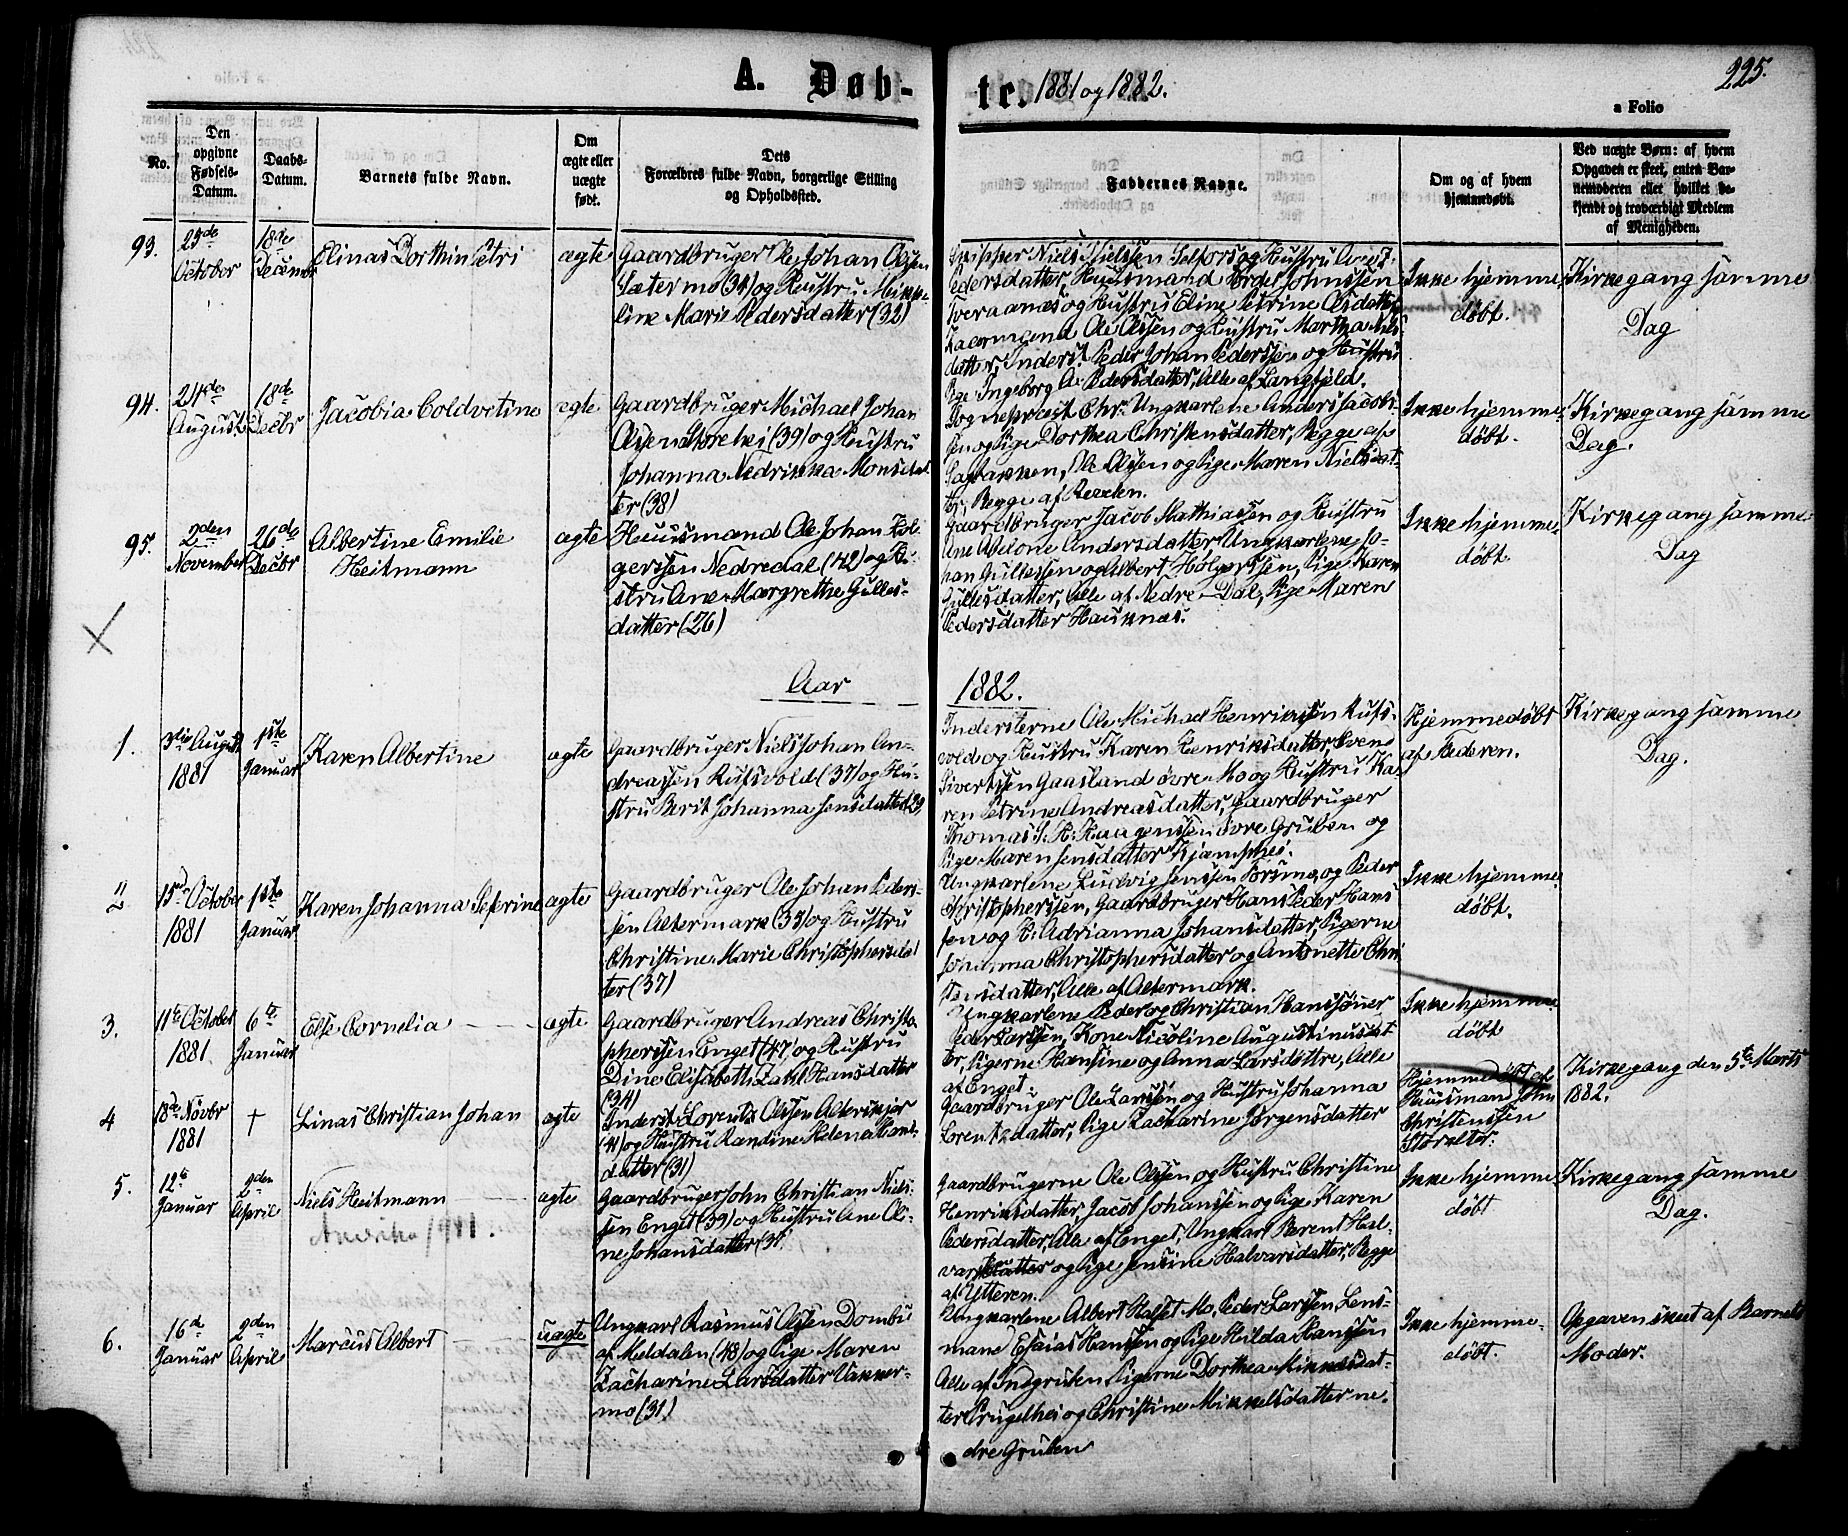 225.
A. Døb-
te. 1881 og 1882.
a Folio
No.
Den opgivne Fødsels-Datum.
Daabs-Datum.
Barnets fulde Navn.
Om ægte eller uægte født.
Dets Forældres fulde Navn, borgerlige Stilling og Opholdssted.
Faddernes Navne.
Om og af hvem hjemmedøbt.
Ved uægte Børn: af hvem Opgaven er skeet, enten Barnemoderen eller hvilket bekjendt og troværdigt Medlem af Menigheden.
93.
October
18de Decembr
Elinas Dorthin Petri
ægte
Gaardbruger Ole Johan Olsen
Sætermo (34) og Hustru Mikke-
line Marie Pedersdatter (32)
Skipper Niels Nielssen Selfors og Hustru
Pedersdatter, Huusmand Peder Johnssen
Tveraanæs og Hustru Eline Petrine Olsdatter
Ole Olssen og Hustru Martha Niels-
datter, Inderst Peder Johan Pederssen og Hustru
Pige Ingeborg A. Pedersdatter, Alle af Langfjeld.
Ikke hjemme-
døbt.
Kirkegang samme
Dag
94.
24de August
18de Decbr
Jacobia Coldvetine
ægte
Gaardbruger Michael Johan
Olsen Storehei (39) og Hustru
Johanna Nedrikka Monsdat-
ter (38)
Sognepræst Chr. Ungkarlene Anders Jacob-
sen og Pige Dorthea Christensdatter, Begge af
Sagbakken, Ole Olssen og Pige Maren Nielsdat-
ter, Begge af
Ikke hjemme-
døbt.
Kirkegang samme
Dag.
95.
2den November
26de Decbr
Albertine Emilie
Heitmann
ægte
Huusmand Ole Johan Hol-
gerssen Nedredal (42) og Hu-
stru Ane Margrethe Gulles-
datter (26)
Gaardbruger Jacob Mathiassen og Hustru
Ane Andersdatter, Ungkarlene Jo-
han Gullessen og Albert Holgerssen, Pige Karen
Gullesdatter, Alle af Nedre-Dal, Pige Maren
Pedersdatter Hauknæs.
Ikke hjemme-
døbt.
Kirkegang samme
Dag
Aar
1882.
1.
3die August 1881
1ste Januar
Karen Albertine
ægte
Gaardbruger Niels Johan An-
dreassen Rufsvold (37) og Hu-
stru Berit Johanna Jensdatter (29
Indersterne Ole Michael Henrikssen Rufs-
vold og Hustru Karen Henriksdatter, Svend
Sivertssen Gaasland øvre-Mo og Hustru Ka-
ren Petrine Andreasdatter, Gaardbruger
Thomas S. H. Haagenssen øvre Gruben og
Pige Maren Jensdatter Kjæmphei.
Hjemmedøbt
af Faderen.
Kirkegang samme
Dag.
2
15de October 1881
1ste Januar
Karen Johanna Sefrine
ægte
Gaardbruger Ole Johan Peders-
sen Altermark (34) og Hustru
Christine Marie Christophersdat
ter (37)
Ungkarlene Ludvig Jenssen Forsmo, og Peder
Christopherssen, Gaardbruger Hans Peder Hans
sen og H. Adrianna Johansdatter, Pigerne
Johanna Christophersdatter og Antonette Chri
stensdatter, Alle af Altermark.
Ikke hjemme
døbt.
3.
11te October 1881
6te Januar
Else Cornelia
ægte
Gaardbruger Andreas Christo
pherssen Enget (47) og Hustru
Dine Elisabeth Zahl Hansdatter
(34)
Ungkarlene Peder og Christian Hanssøner
Peder Larssen, Kone Nicoline Augustinusdat
ter, Pigerne Hansine og Anna Larsdøttre, Alle
af Enget.
Ikke hjemme
døbt
4
18de Novbr 1881
†
Linas Christian Johan
ægte
Inderst Lorents Olssen Alderskjær
(41) og Hustru Randine Helena Hans-
datter (31)
Gaardbruger Ole Larssen og Hustru Johanna
Lorentzdatter, Pige Zacharine Jørgensdatter
Hjemmedøbt af
Huusmand John
Christenssen
Storalter.
Kirkegang den 5te Marts
1882.
5.
12te Januar
9den April
Niels Heitmann
Amerika 1911.
ægte
Gaardbruger John Christian Niels-
sen Enget (39) og Hustru Ane Oli-
ne Johansdatter (31
Gaardbrugerne Ole Olssen og Hustru Christine
Henriksdatter, Jacob Johanssen og Pige Karen
Pedersdatter, Alle af Enget, Ungkarl Berent Hal-
og Pige Jensine Halvarsdatter, Begge
af Ytteren.
Ikke hjemme
døbt
Kirkegang samme
Dag.
6.
16de Januar
9den April
Marcus Albert
uægte
Ungkarl Rasmus Olssen Dombu
af Meldalen (48) og Pige Maren
Zacharine Larsdatter Vakker-
mo (31)
Ungkarlene Albert Halset Mo, Peder Larssen Lens-
mand Esaias Hanssen og Pige Hilda Hanssen
Alle af Indgruben Pigerne Dorthea Mikkelsdat-
ter Prugelhei og Christine Mikkelsdatter ne-
dre Gruben
Ikke hjemme-
døbt.
Opgaven skeet af Barnets
Moder.